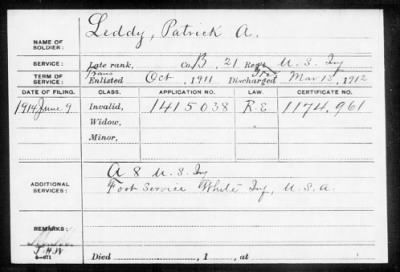 NAME OF SOLDIER: Leddy, Patrick A.
SERVICE: Late rank, Co. B, 21 Reg't U. S. Inf
TERM OF SERVICE: Enlisted Oct , 1911 Discharged Mar 15, 1912
DATE OF FILING. CLASS. APPLICATION NO. LAW. CERTIFICATE NO.
1914 June 9 Invalid, 1415038 R.E 1174,961
Widow,
Minor,
A 8 U. S. Inf
ADDITIONAL SERVICES: Fort Service White Inf, U.S.A.
REMARKS:
J.H.W
Died , 1 , at